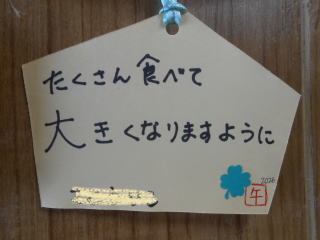 たくさん食べて
大きくなりますように
2026
午